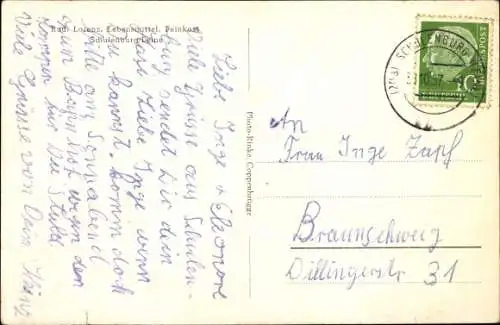 Rud. Lorenz, Lebensmittel, Feinkost
Schulenburg/Leine
Liebe Inge u Eleonore
viele Grüsse aus Schulen-
burg sendet Dir dein
Liebe Inge wenn
du kannst komm doch
bitte am Sonnabend
zum wegen den
nur die
Viele Grüsse von Oma Heinz
Photo-Rinke, Coppenbrügge
SCHULENBURG
(20a)
DEUTSCHE BUNDESPOST
10
An
Frau Inge Zapf
Braunschweig
Dillingerstr 31